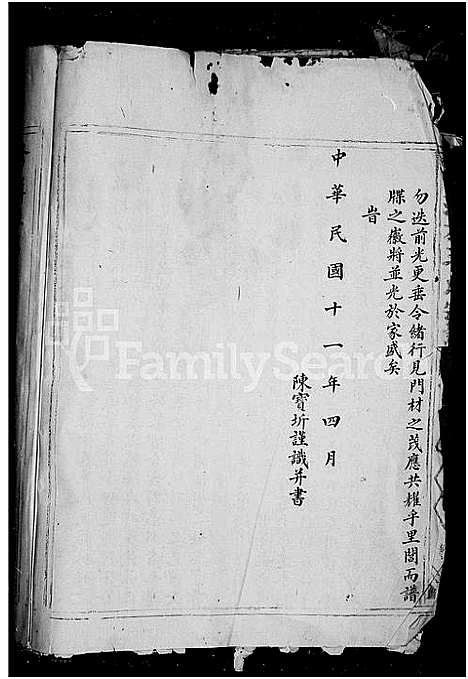 勿迭前光更垂令緒行見門材之茂應共耀乎里閭而譜
牒之徽將並光於家盛矣
旹
中華民國十一年四月
陳寶圻謹識并書
FamilySearch